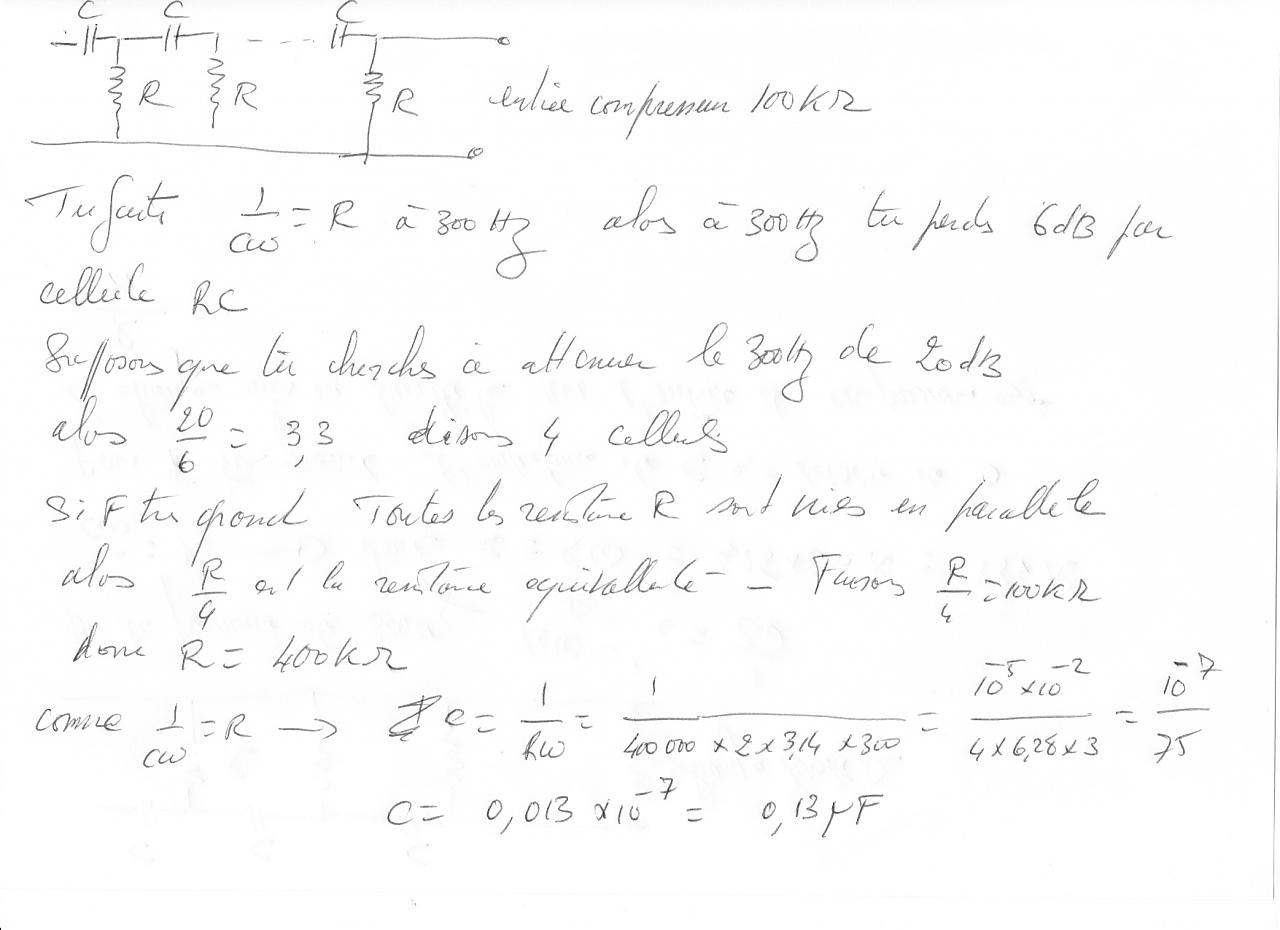 C C C
R R R entrée compresseur 100KΩ
Tu fais 1/Cω = R à 300 Hz alors à 300Hz tu perds 6dB par
cellule RC
Supposons que tu cherches à attenuer le 300Hz de 20dB
alors 20/6 = 3,3 disons 4 cellules
Si F très grand Toutes les resistance R sont mises en parallele
alors R/4 est la resistance equivallente - Faisons R/4 = 100KΩ
donc R = 400KΩ
comme 1/Cω = R → C = 1/Rω = 1/(400 000 x 2 x 3,14 x 300) = 10⁻⁵ x 10⁻²/(4 x 6,28 x 3) = 10⁻⁷/75
C = 0,013 x 10⁻⁷ = 0,13 μF